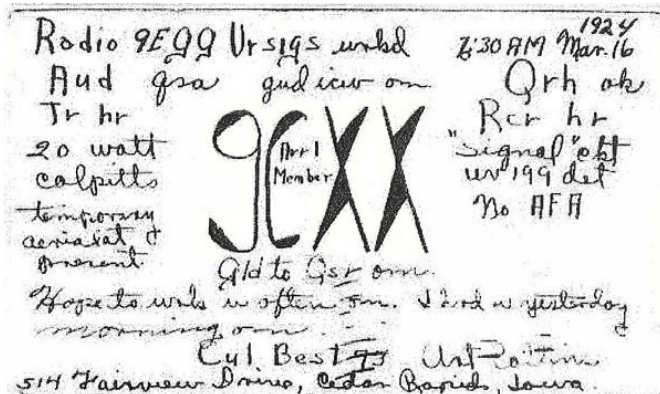 1924
Radio 9EGG Ur sigs wrkd 7:30 AM Mar. 16
Aud qsa gud icw om Qrh ok
Tr hr
20 watt
colpitts
temporary
aerial at
present
9CXX
Arrl
Member
Rcr hr
"Signal" ckt
uv 199 det
No AFA
Gld to Qsr om.
Hope to wrk u often om. I hrd u yesterday
morning om.
Cul Best 73
514 Fairview Drive, Cedar Rapids, Iowa.